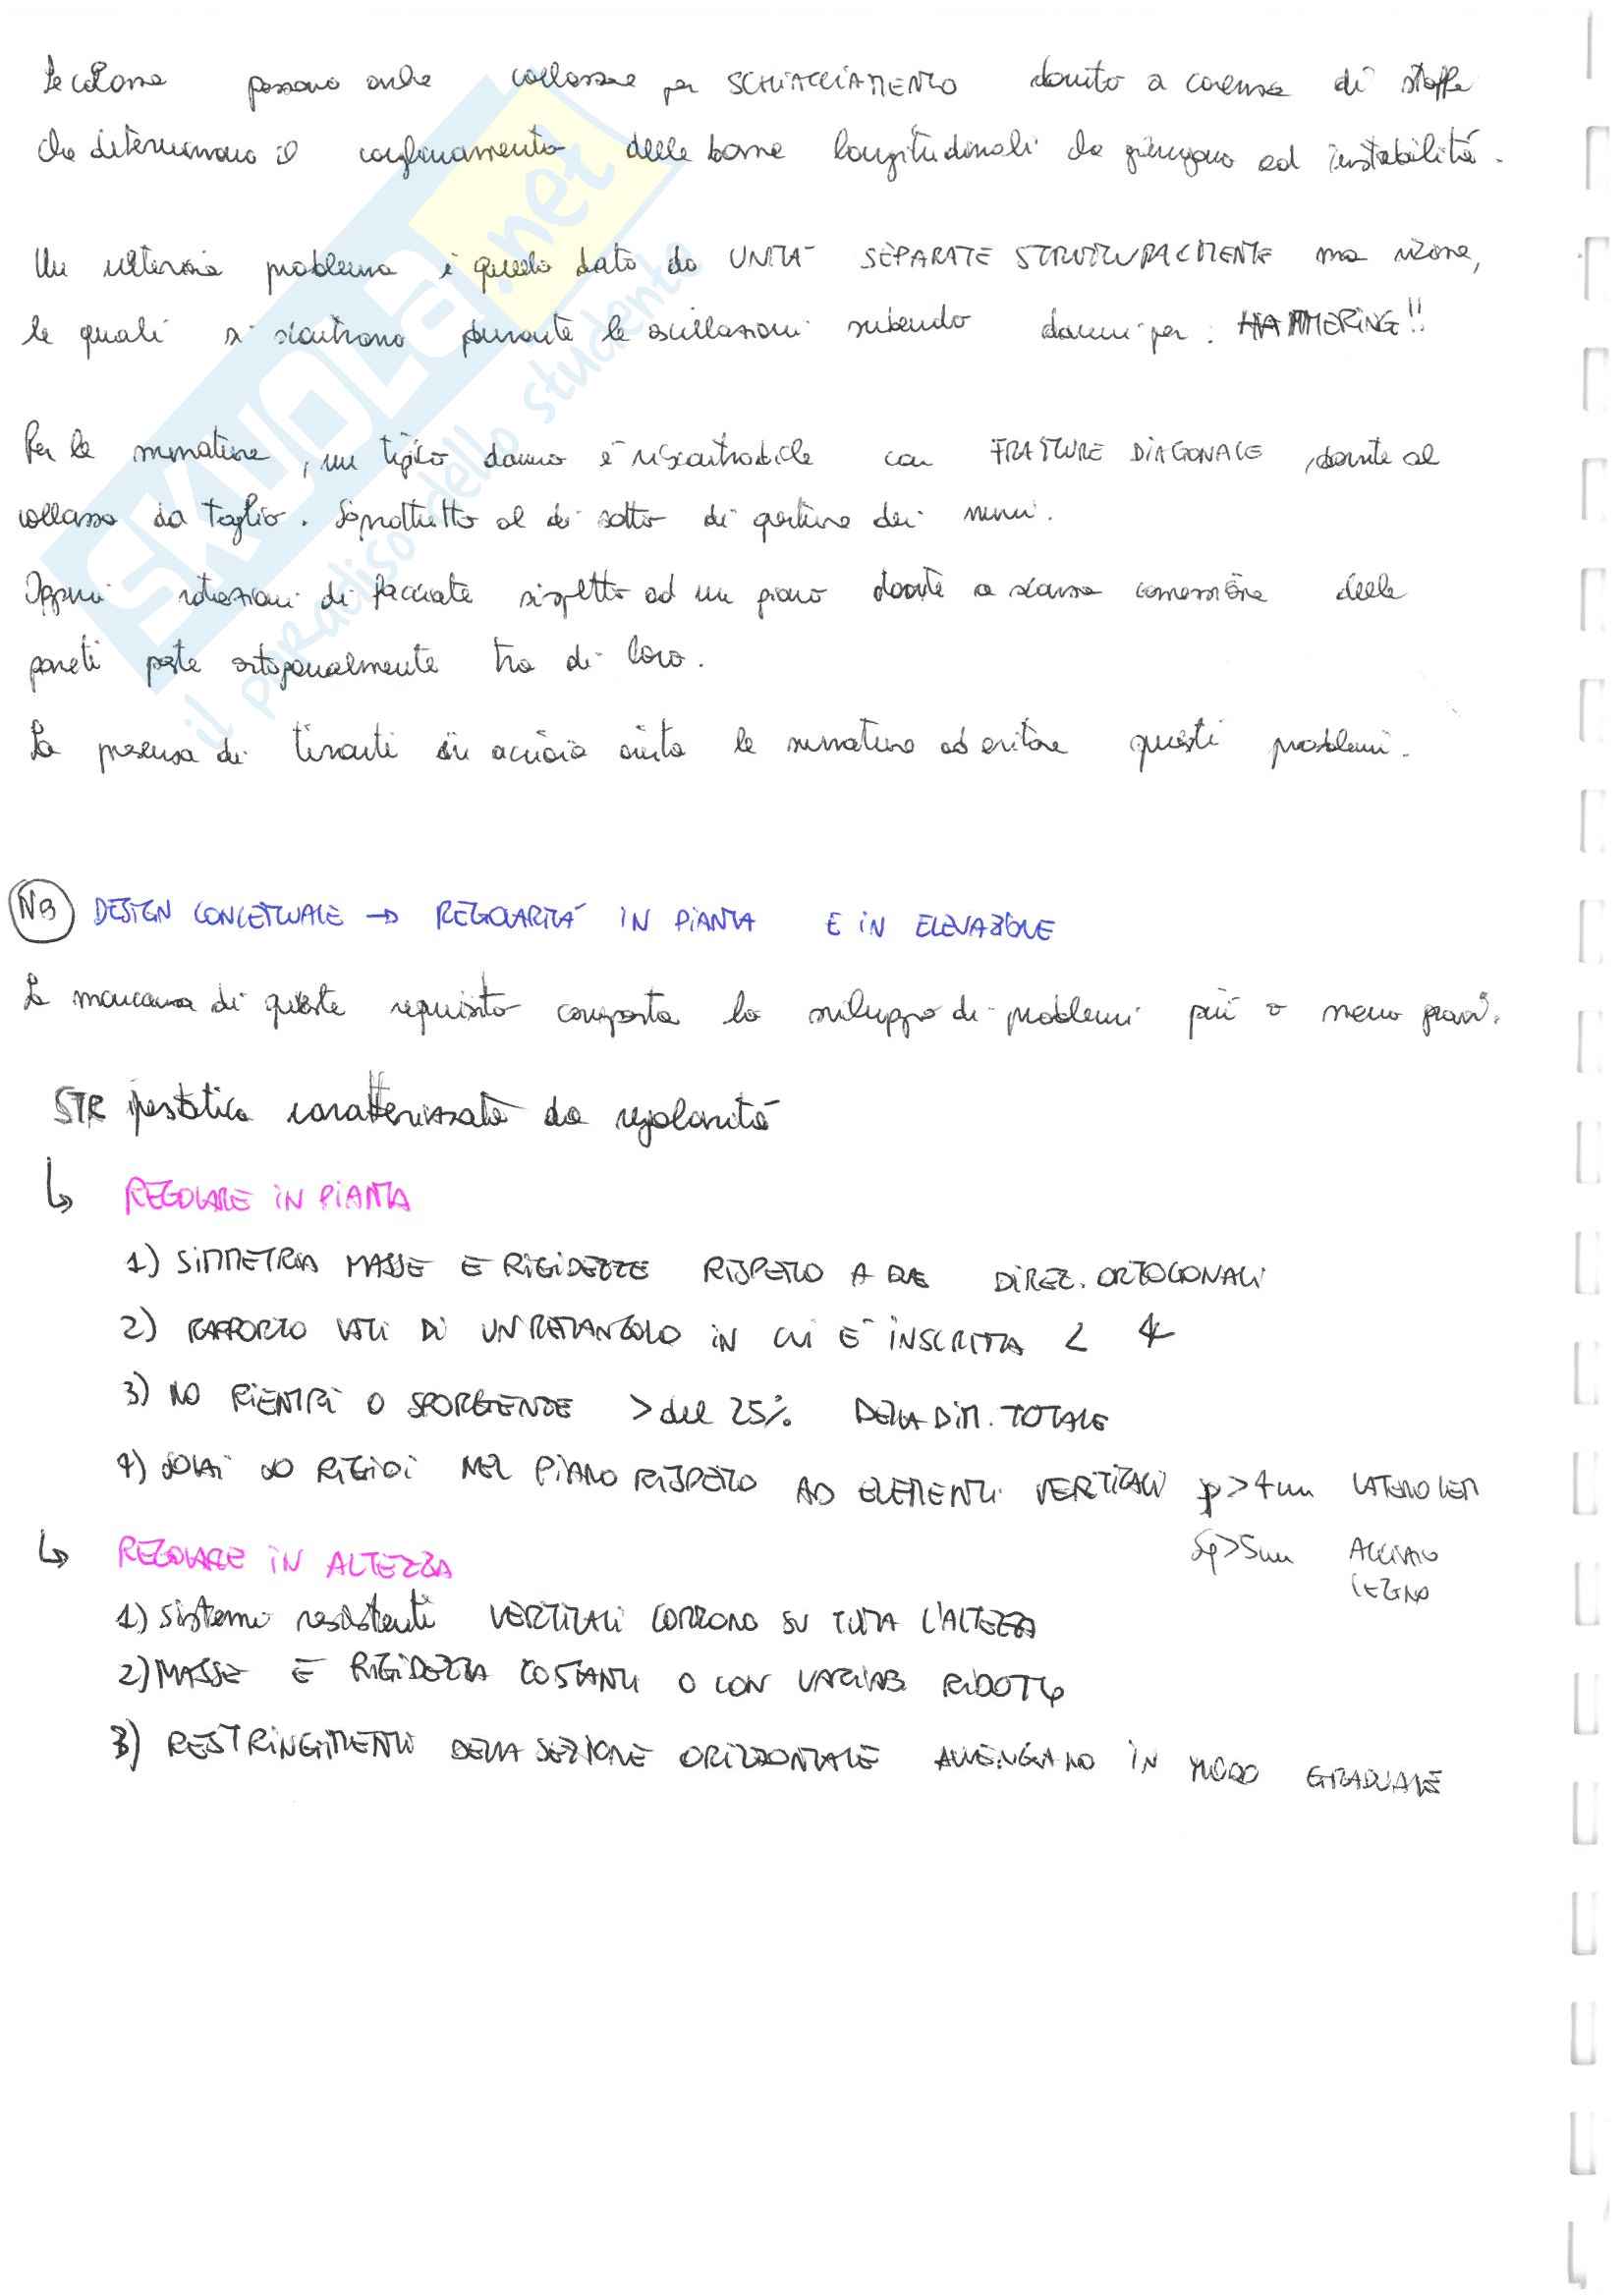 Le colonne possono anche collassare per SCHIACCIAMENTO dovuto a carenza di staffe
che determinano il confinamento delle barre longitudinali che giungono ad instabilità.
Un ulteriore problema è quello dato da UNITÀ SEPARATE STRUTTURALMENTE ma vicine,
le quali si scontrano durante le oscillazioni subendo danni per: HAMMERING!!
Per le murature, un tipico danno è riscontrabile con FRATTURE DIAGONALE, dovute al
collasso da taglio. Soprattutto al di sotto di aperture dei muri.
Oppure rotazioni di facciate rispetto ad un piano dovute a scarsa connessione delle
pareti poste ortogonalmente tra di loro.
La presenza di tiranti in acciaio aiuta le murature ad evitare questi problemi.
NB DESIGN CONCETTUALE → REGOLARITÀ IN PIANTA E IN ELEVAZIONE
La mancanza di queste requisito comporta lo sviluppo di problemi più o meno gravi.
STR ipestatica caratterizzata da regolarità
↳ REGOLARE IN PIANTA
1) SIMMETRIA MASSE E RIGIDEZZE RISPETTO A DUE DIREZ. ORTOGONALI
2) RAPPORTO LATI DI UN RETTANGOLO IN CUI È INSCRITTA < 4
3) NO RIENTRI O SPORGENZE > del 25% DELLA DIM. TOTALE
4) SOLAI RIGIDI NEL PIANO RISPETTO AD ELEMENTI VERTICALI >4cm LATERO CEM
Sp>5cm ACCIAIO
LEGNO
↳ REGOLARE IN ALTEZZA
1) Sistemi resistenti VERTICALI CORRONO SU TUTTA L'ALTEZZA
2) MASSE E RIGIDEZZA COSTANTI O CON VARIAB. RIDOTTE
3) RESTRINGIMENTI DELLA SEZIONE ORIZZONTALE AVVENGANO IN MODO GRADUALE
SKUOLA.net
il paradiso dello studente